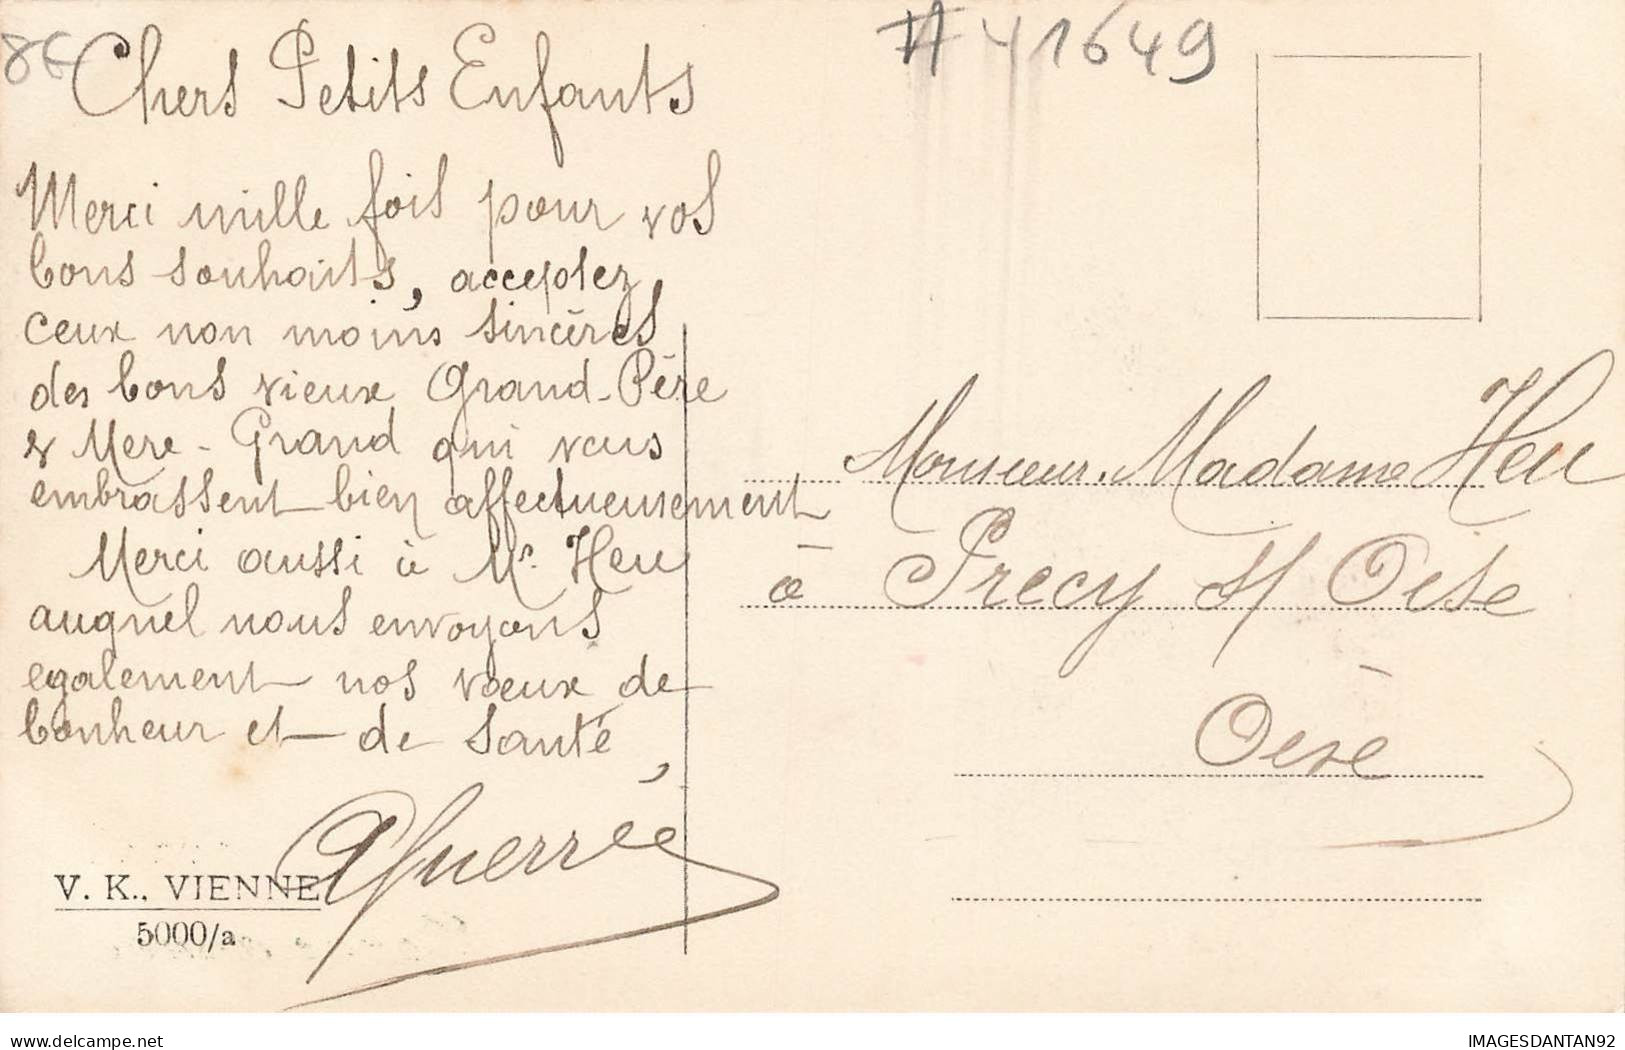 8€
# 41649
Chers Petits Enfants
Merci mille fois pour vos
bons souhaits, acceptez
ceux non moins sincères
des bons vieux Grand-Père
& Mere-Grand qui vous
embrassent bien affectueusement
Merci aussi à Mr. Heu
auquel nous envoyons
egalement nos voeux de
bonheur et de Santé,
Guerrée
V. K., VIENNE
5000/a
Monsieur. Madame Heu
à Précy s/ Oise
Oise
IMAGESDANTAN92
delcampe.net